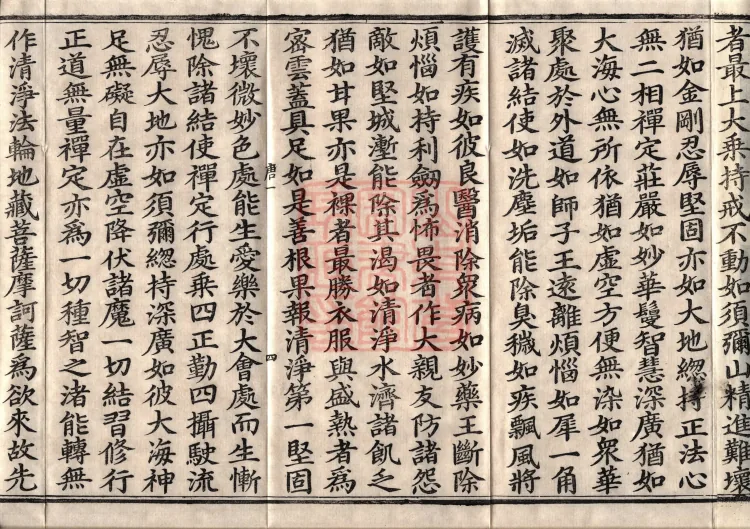 者最上大乗持戒不動如須彌山精進難壞
猶如金剛忍辱堅固亦如大地緫持正法心
無二相禪定莊嚴如妙華鬘智慧深廣猶如
大海心無所依猶如虛空方便無染如衆華
聚處於外道如師子王遠離煩惱如犀一角
滅諸結使如洗塵垢能除臭穢如疾飄風將
護有疾如彼良醫消除衆病如妙藥王斷除
煩惱如持利劒爲怖畏者作大親友防諸怨
敵如堅城塹能除其渴如清淨水濟諸飢乏
猶如甘果亦是裸者最勝衣服與盛熱者爲
密雲蓋具足如是善根果報清淨第一堅固
唐一 四
不壞微妙色處能生愛樂於大會處而生慚
愧除諸結使禪定行處乗四正勤四攝駛流
忍辱大地亦如須彌緫持深廣如彼大海神
足無礙自在虛空降伏諸魔一切結習修行
正道無量禪定亦爲一切種智之渚能轉無
作清淨法輪地藏菩薩摩訶薩爲欲來故先